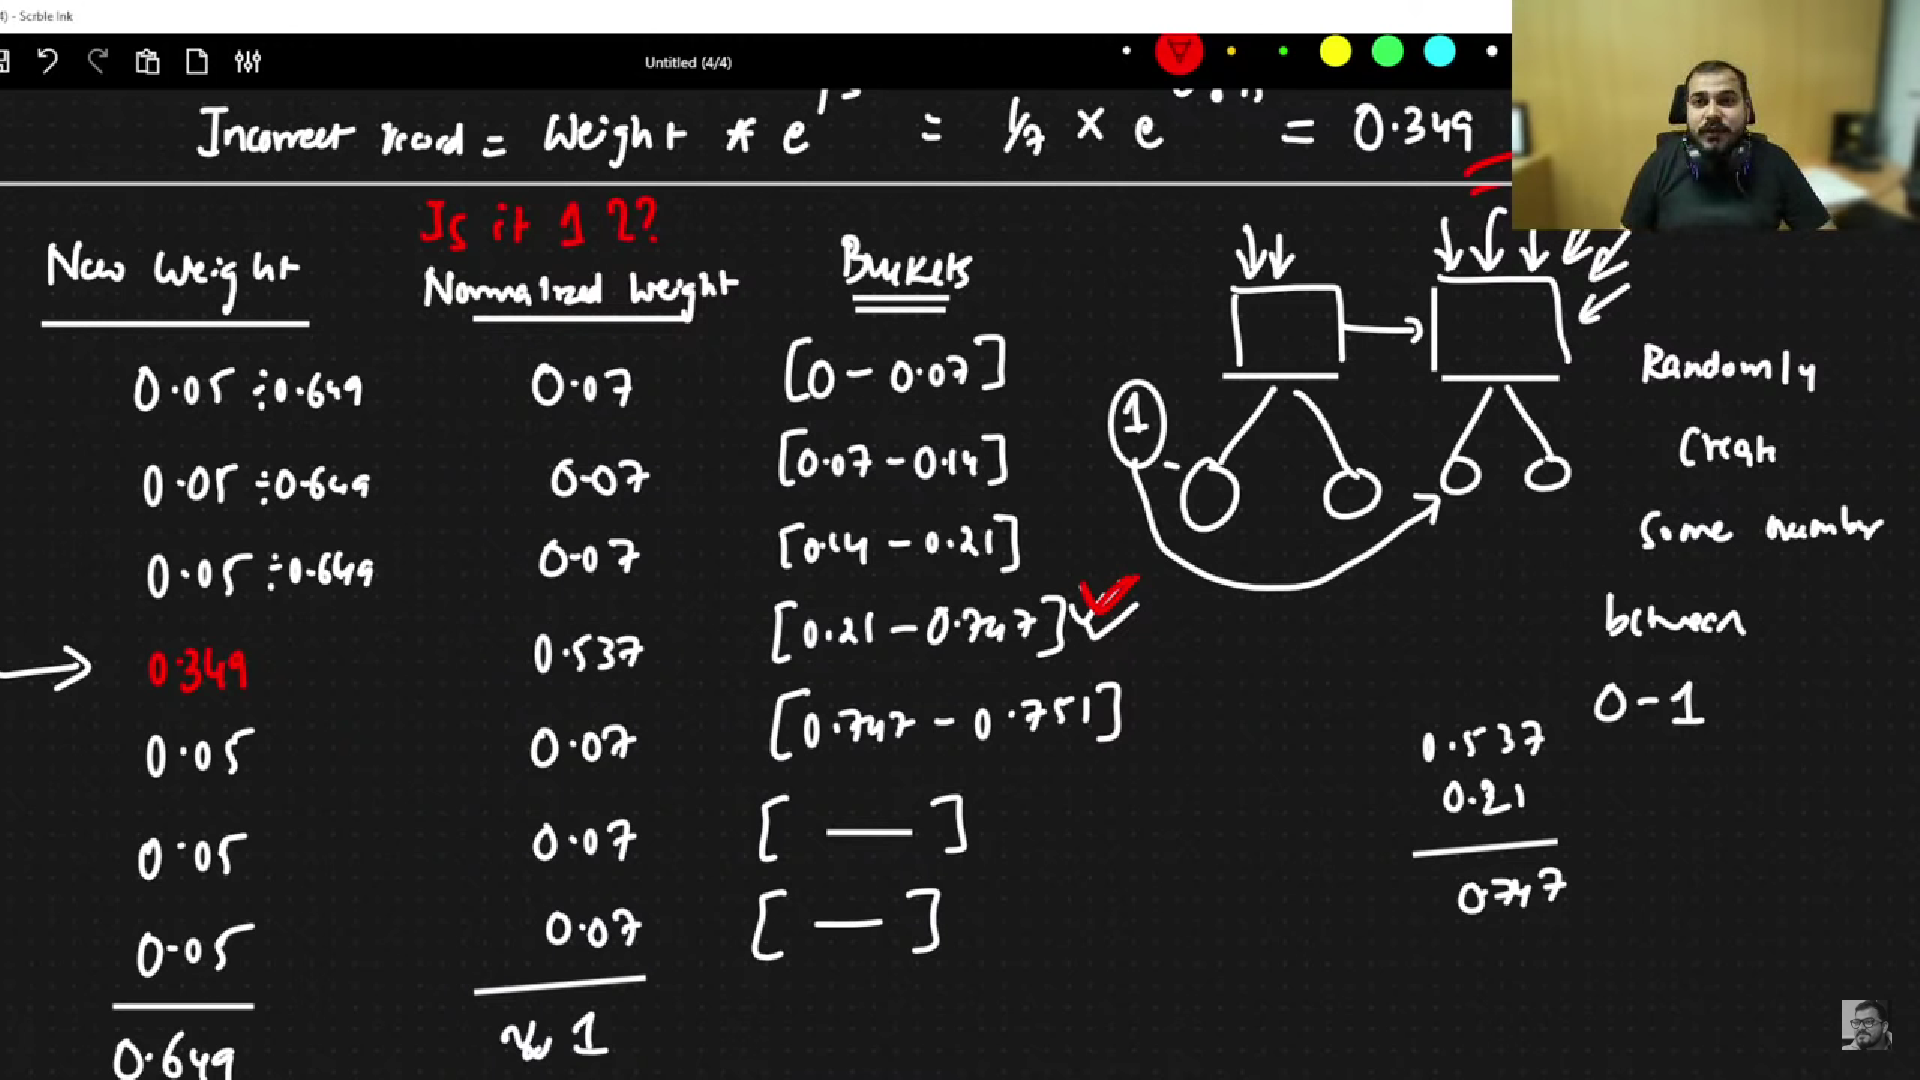 4) - Scrble Ink
Untitled (4/4)
Incorrect record = Weight * e = 1/7 × e = 0.349
Is it 1 ??
New Weight
Normalized Weight
Buckets
0.05 ÷0.649 0.07 [0 - 0.07]
0.05 ÷0.649 0.07 [0.07 - 0.14]
0.05 ÷0.649 0.07 [0.14 - 0.21]
0.349 0.537 [0.21 - 0.747]
0.05 0.07 [0.747 - 0.751]
0.05 0.07 [ — ]
0.05 0.07 [ — ]
0.649 ≈ 1
1
Randomly
Create
Some number
between
0-1
0.537
0.21
0.747